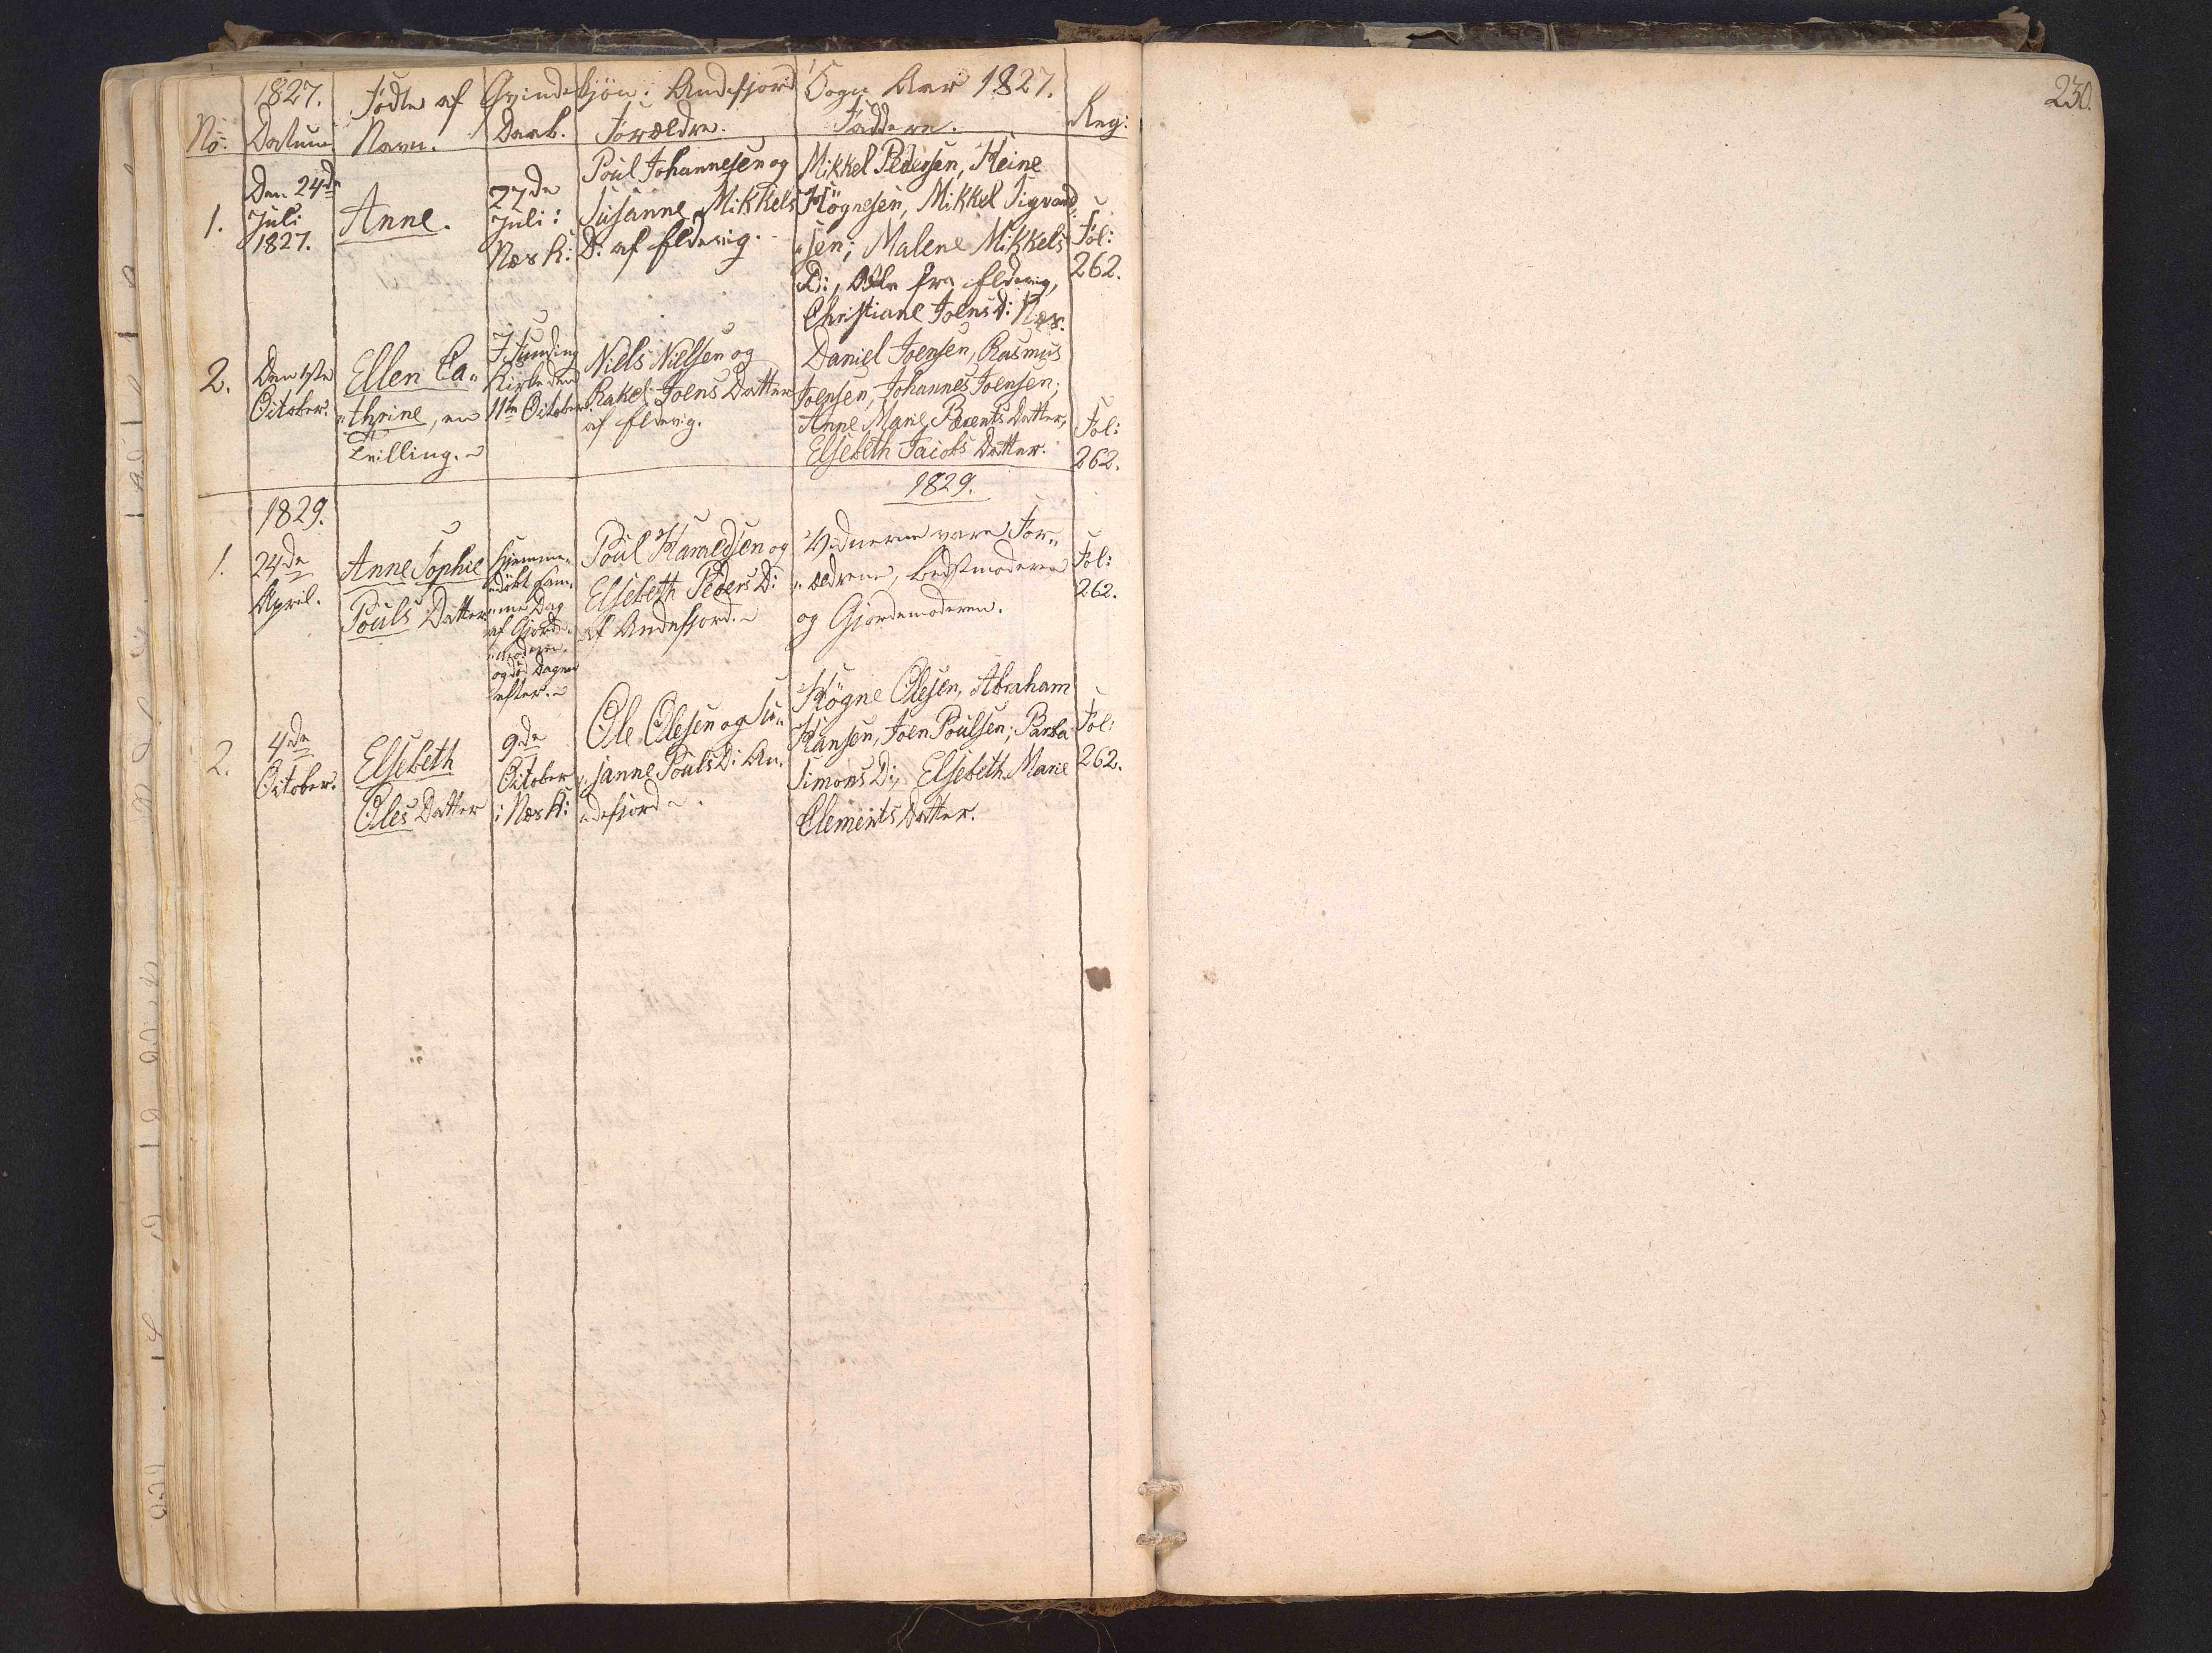 230.
1827. Fødte af Qvindekjön i Andefjord Sogn Aar 1827.
No: Datum Navn. Daab. Forældre. Faddere. Reg:
1.
Den 24de
Juli
1827.
Anne.
27de
Juli i
Næs K:
Poul Johannesen og
Susanne Mikkels
D: af Eldevig.
Mikkel Pedersen, Heine
Högnesen, Mikkel Sigvard
"sen; Malene Mikkels
D:, Alle fra Eldevig,
Christiane Joens D: Næs.
Fol:
262.
2.
Den
October.
Ellen Ca"
"thrine, en
Tvilling.
I Funding
Kirke den
11te October.
Niels Nielsen og
Rakel Joens Datter
af Eldevig.
Daniel Joensen, Rasmus
Joensen, Johannes Joensen;
Anne Marie Berents Datter,
Elsebeth Jacobs Datter.
Fol:
262.
1829.
1829.
1.
24de
April.
Anne Sophie
Pouls Datter
Hjemme"
"döbt sam"
"me Dag
af Gjorde"
"moderen,
og död Dagen
efter.
Poul Hanedsen og
Elsebeth Peders D:
af Andefjord.
Vidnerne vare For"
"ældrene, Bedstmoderen
og Gjordemoderen.
Fol:
262.
2.
4de
October.
Elsebeth
Oles Datter
9de
October
i Næs K:
Ole Olesen og Su"
"sanne Pouls D: An"
"defjord
Högne Olesen, Abraham
Hansen, Joen Poulsen; Barba
Simons D:, Elsebeth Marie
Clements Datter.
Fol:
262.